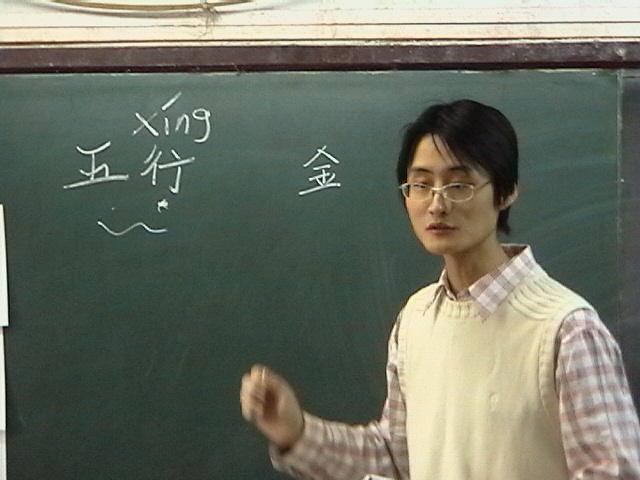 xíng
五行 金